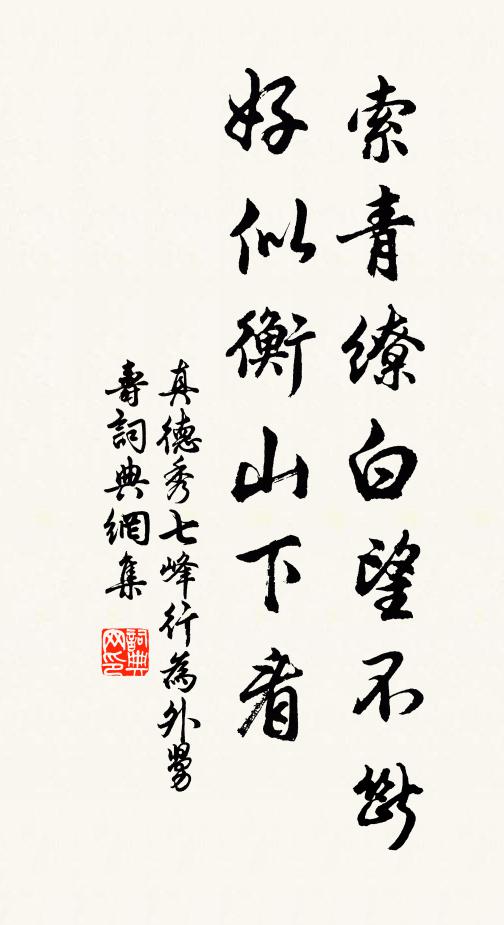 索青繚白望不斷
好似衡山下看
真德秀七峰行為外舅
壽詞典網集
詞典
网印